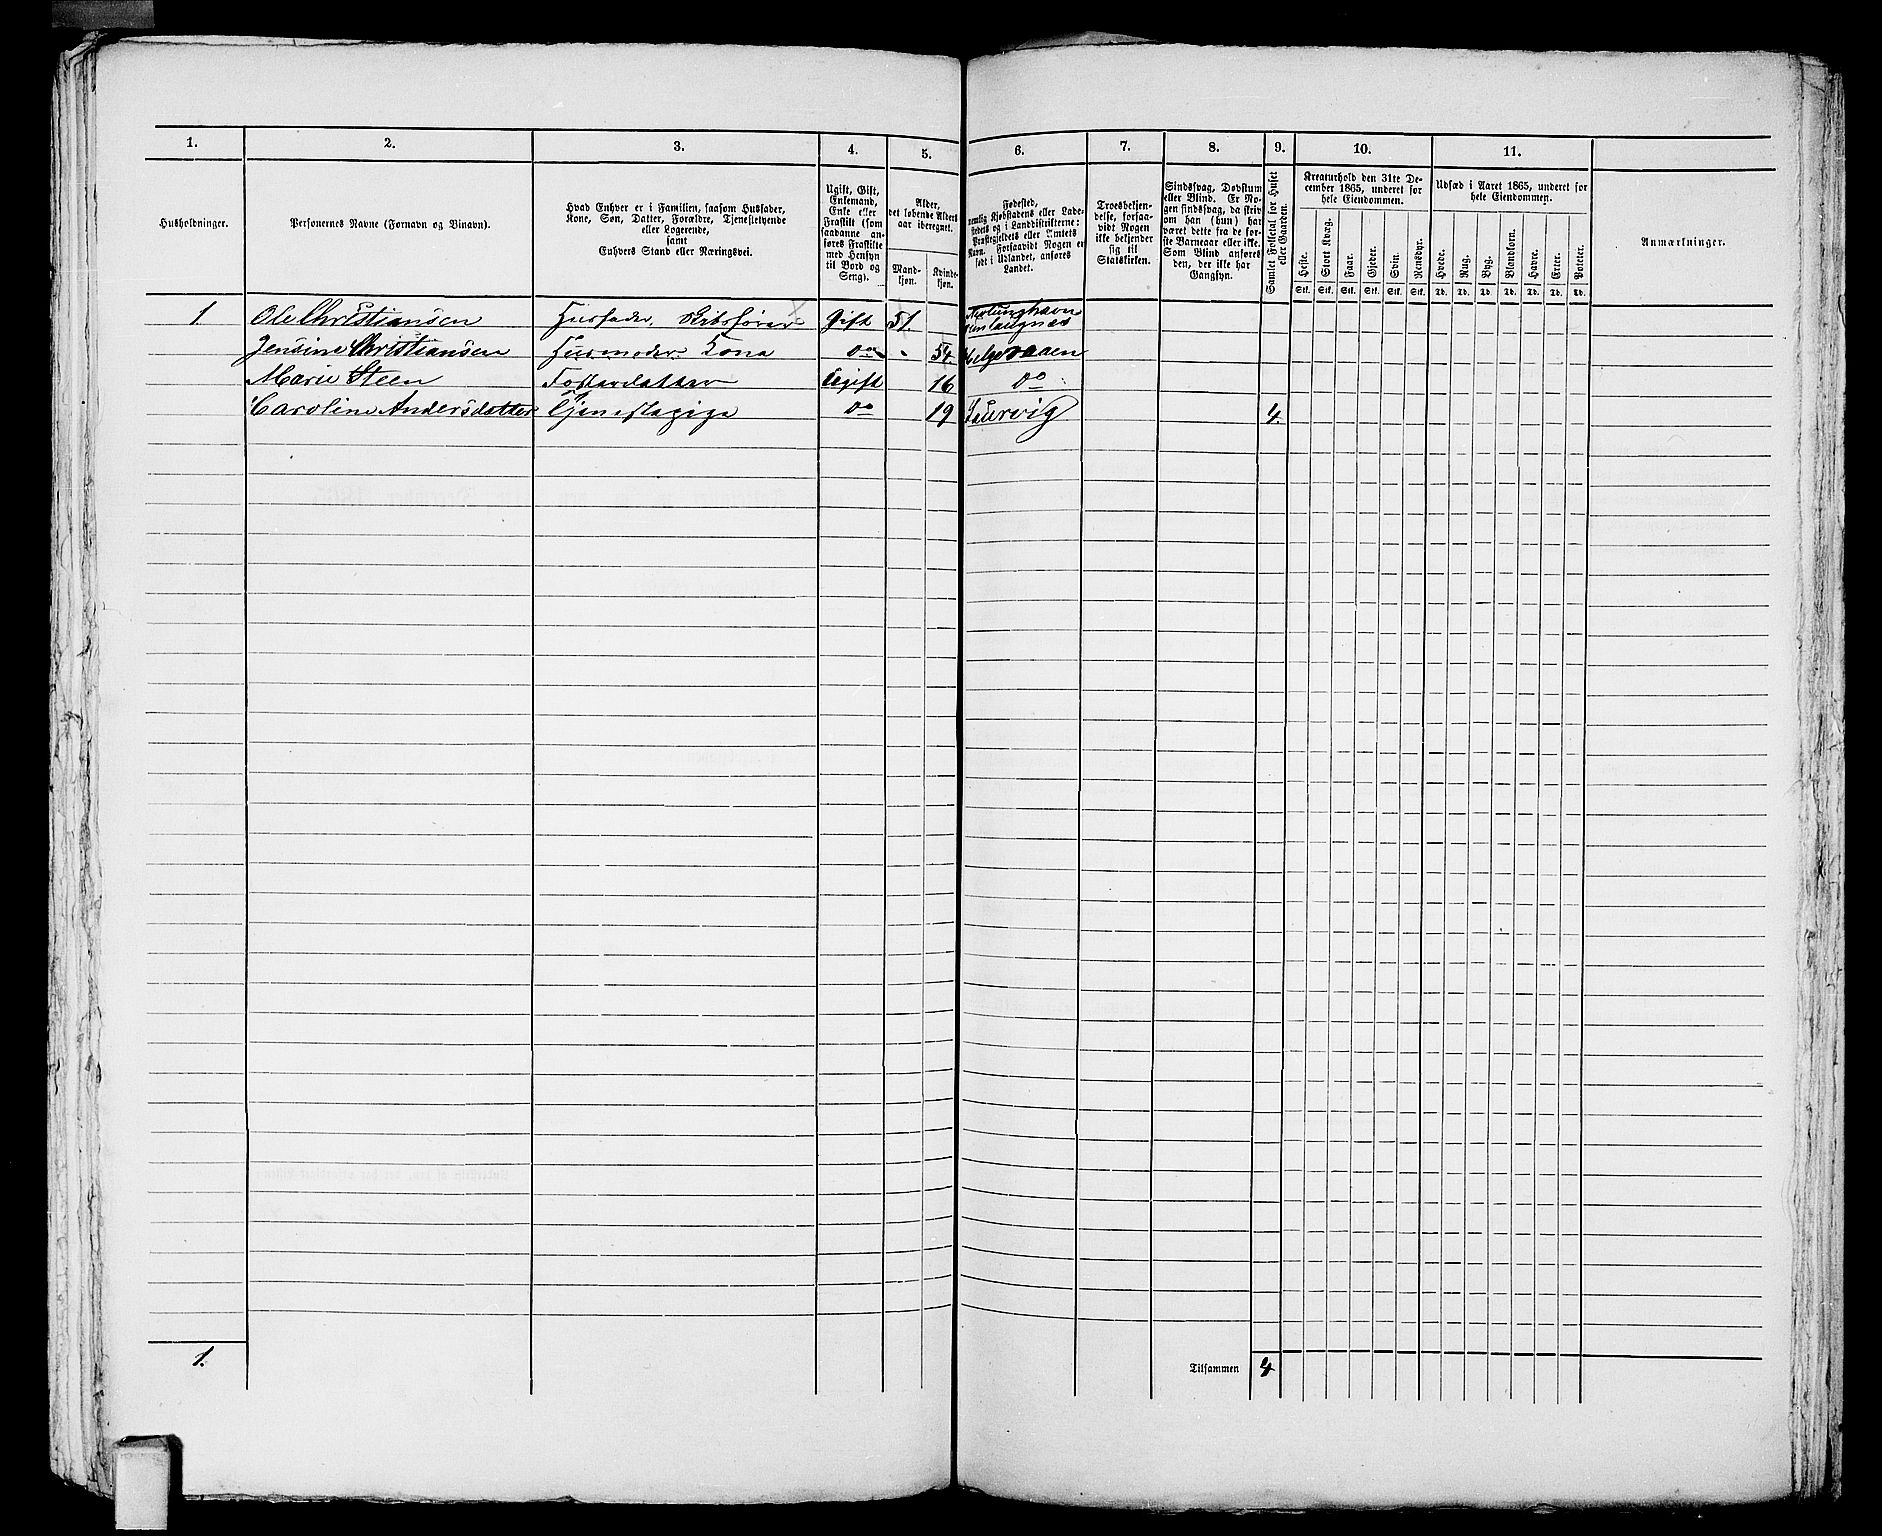 1. 2. 3. 4. 5. 6. 7. 8. 9. 10. 11.
Husholdninger.
Personernes Navne (Fornavn og Binavn).
Hvad Enhver er i Familien, saasom Husfader,
Kone, Søn, Datter, Forældre, Tjenestetyende
eller Logerende,
samt
Enhvers Stand eller Næringsvei.
Ugift, Gift,
Enkemand,
Enke eller
Fraskilt (som
saadanne an-
føres Fraskilte
med Hensyn
til Bord og
Seng).
Alder,
det løbende Alders-
aar iberegnet.
Mand-
kjøn.
Kvinde-
kjøn.
Fødested,
nemlig Kjøbstadens eller Lade-
stedets og i Landdistrikterne:
Præstegjeldets eller Amtets
Navn. Forsaavidt Nogen er
født i Udlandet, anføres
Landet.
Troesbekjen-
delse, forsaa-
vidt Nogen
ikke bekjender
sig til
Statskirken.
Sindssvag, Døvstum
eller Blind. Er No-
gen sindssvag, da skriv
om han (hun) har
været dette fra de før-
ste Barneaar eller ikke.
Som Blind anføres
den, der ikke har
Gangsyn.
Samlet Folketal for Huset
eller Gaarden.
Kreaturhold den 31te De-
cember 1865, underet for
hele Eiendommen.
Heste. Stort Kvæg. Faar. Gjeder. Svin. Rensdyr.
Stk. Stk. Stk. Stk. Stk. Stk.
Udsæd i Aaret 1865, underet for
hele Eiendommen.
Hvede. Rug. Byg. Blandkorn. Havre. Erter. Poteter.
Td. Td. Td. Td. Td. Td. Td.
Anmærkninger.
1. Ole Christiansen Husfader, Skibsfører Gift 51.
Jensine Christiansen Husmoder Kona do 54. Helgeraaen
Marie Steen Fosterdatter Ugift 16 do
Caroline Andersdatter Tjenestepige do 19 Laurvig 4.
1. Tilsammen 4